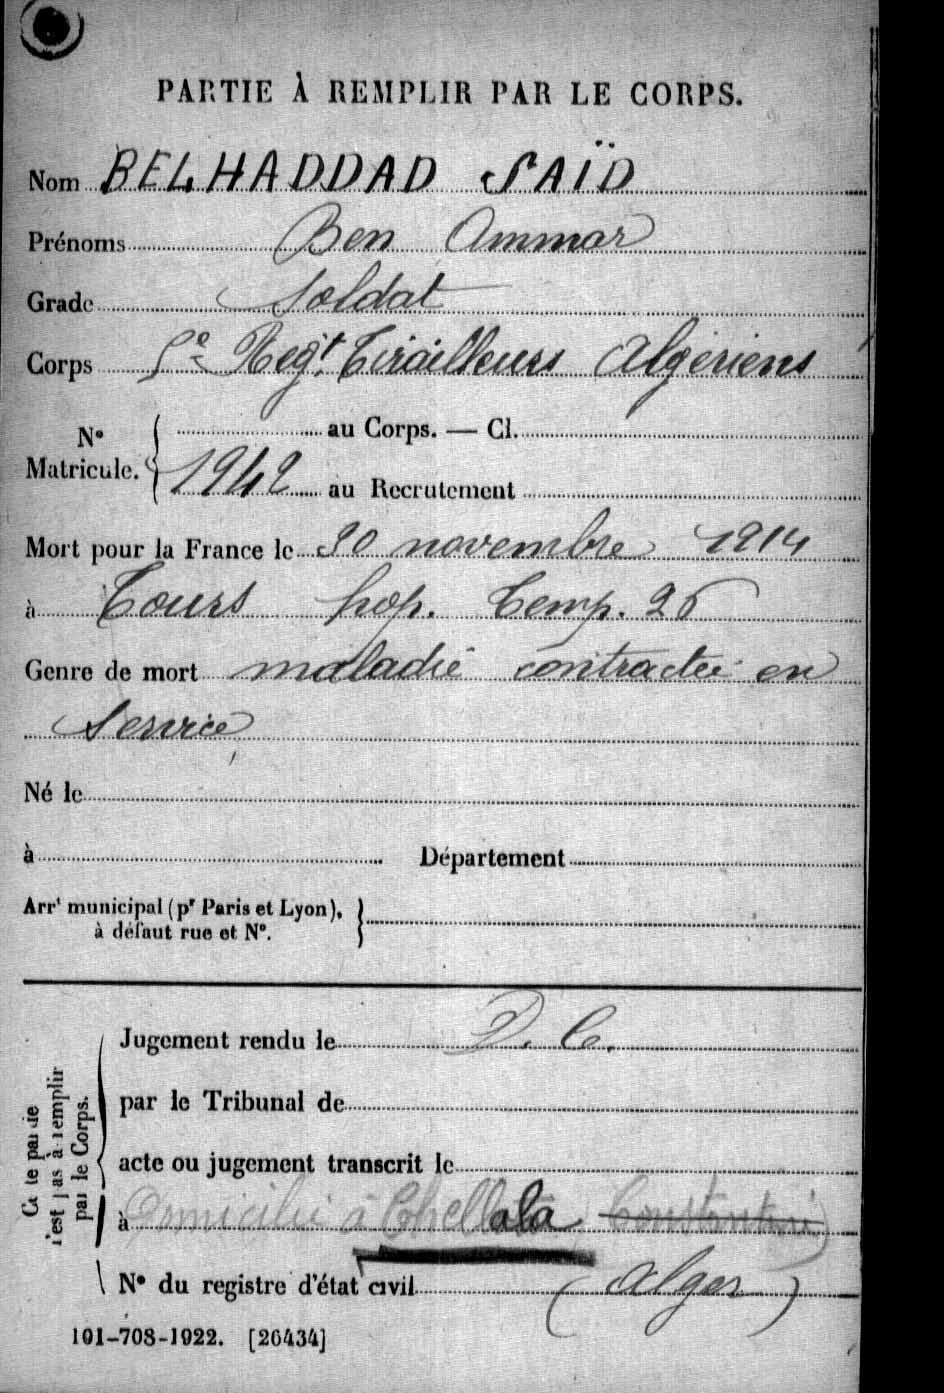 PARTIE À REMPLIR PAR LE CORPS.
Nom BELHADDAD SAÏD
Prénoms Ben Ammar
Grade Soldat
Corps 5e Regt. Tirailleurs Algériens
au Corps. — Cl.
N° Matricule. 1942 au Recrutement
Mort pour la France le 30 novembre 1914
à Tours hop. Temp. 25
Genre de mort maladie contractée en
Service
Né le
à Département
Arrt municipal (pr Paris et Lyon),
à défaut rue et N°.
Cette partie
n'est pas à remplir
par le Corps.
Jugement rendu le D. C.
par le Tribunal de
acte ou jugement transcrit le
à Domicilié à Chellala Constantine
N° du registre d'état civil (Alger)
101-708-1922. [26434]